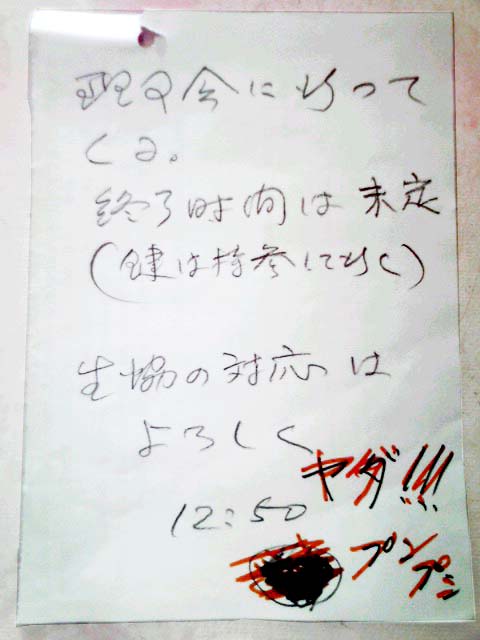 理事会に行って
くる。
終了時間は未定
(鍵は持参して行く)
生協の対応は
よろしく
ヤダ!!!
12:50
プンプン